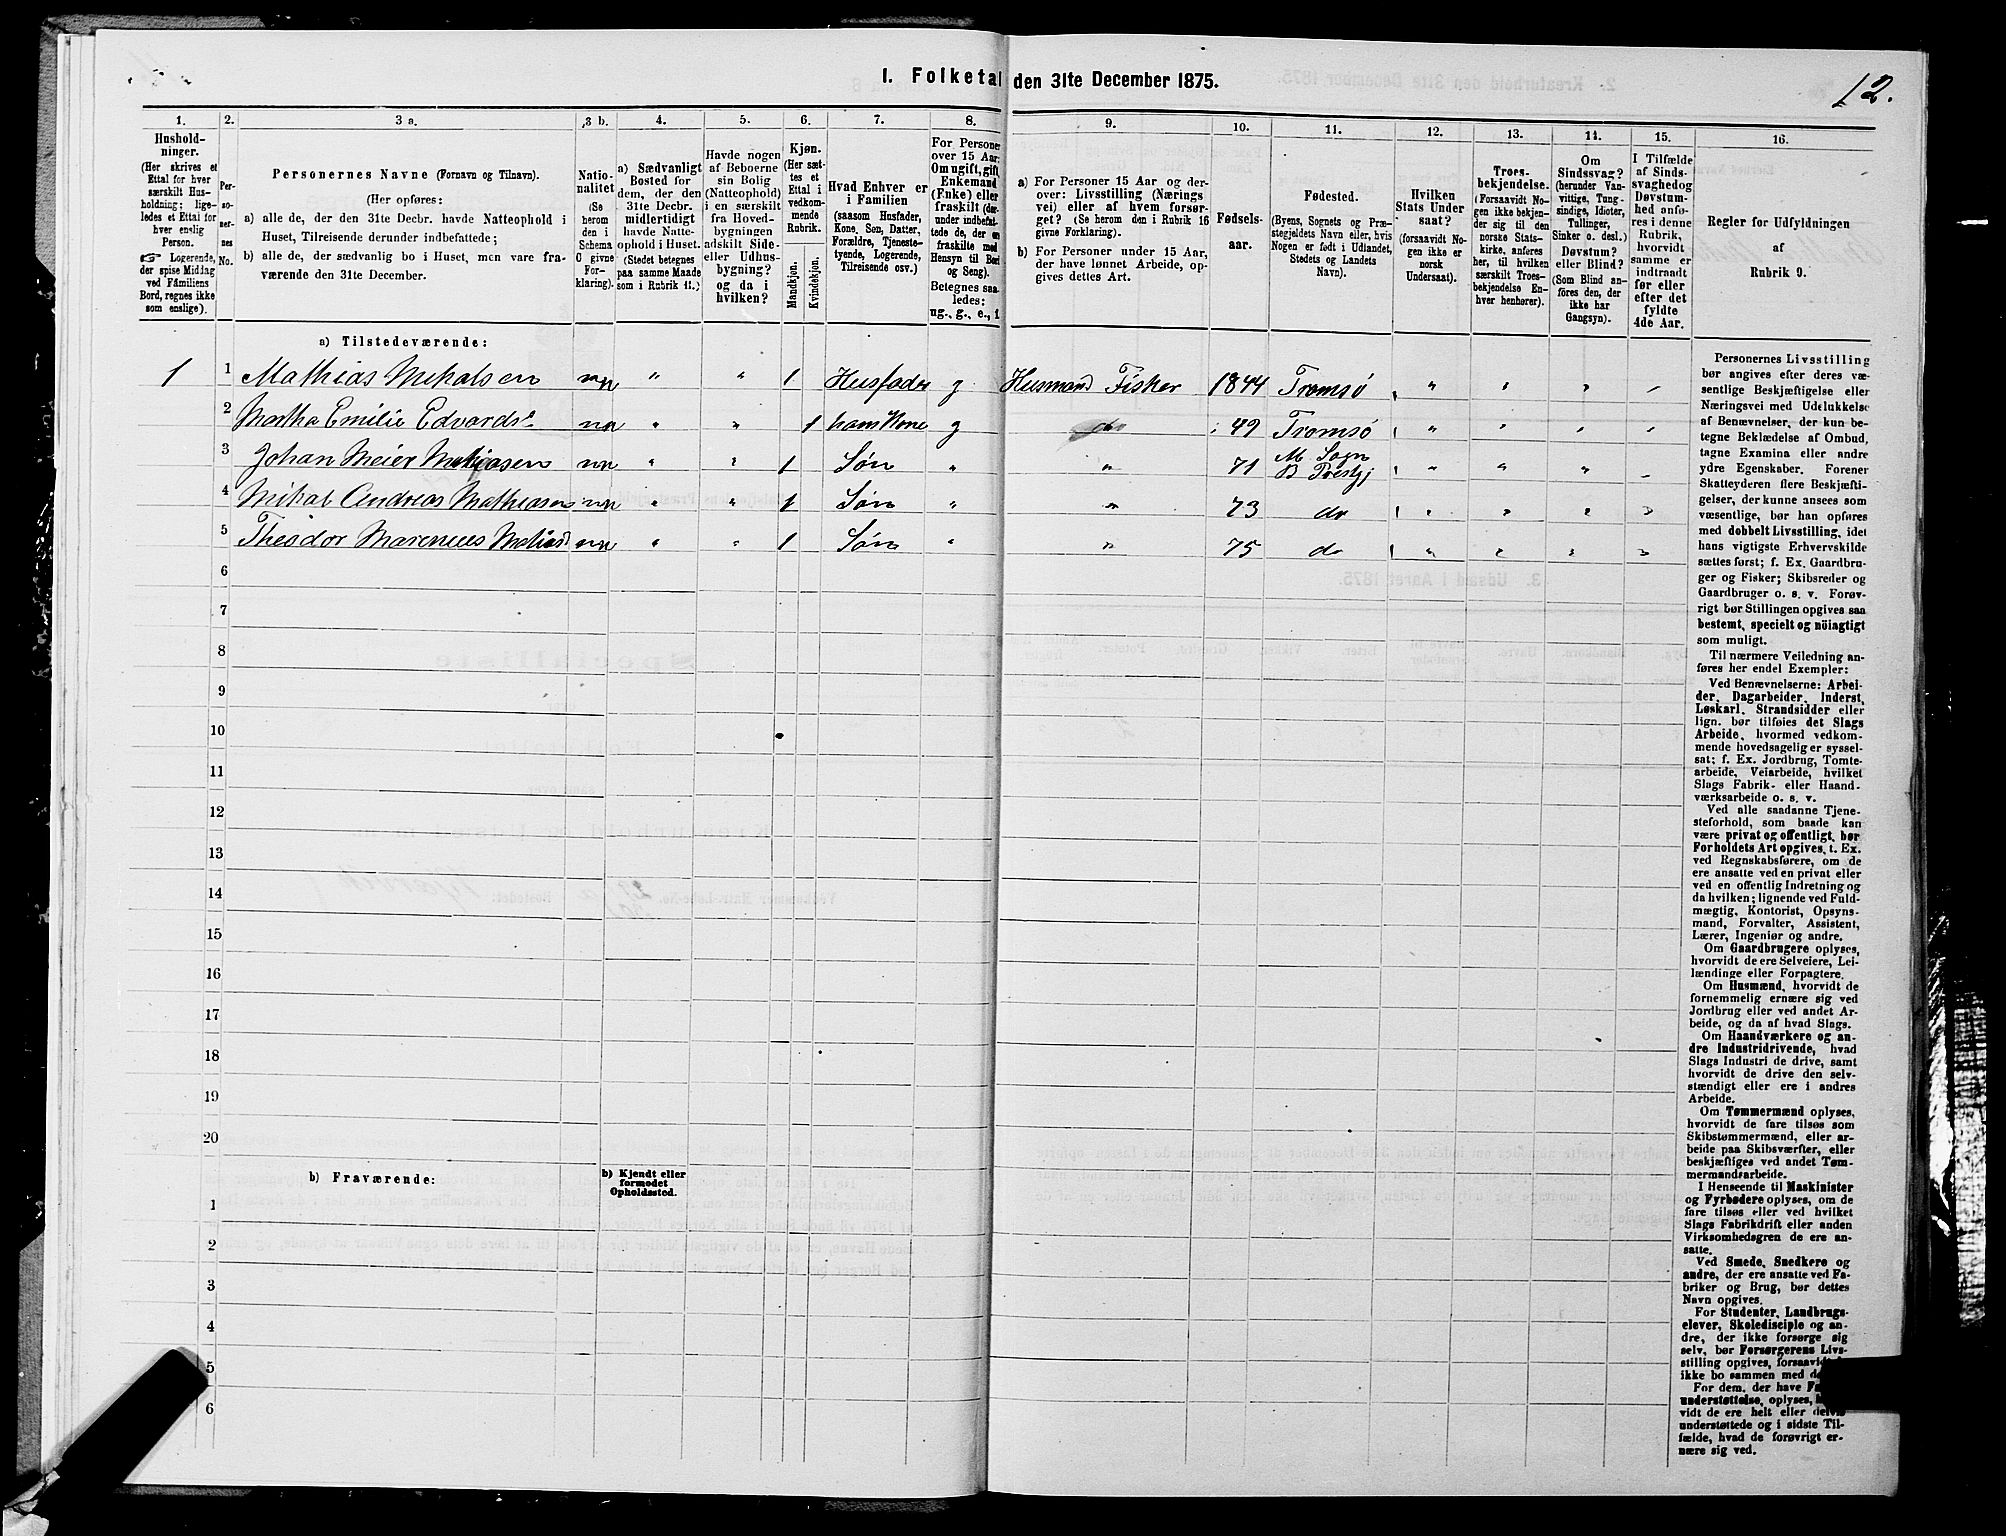 1. Folketal den 31te December 1875.
12.
1.
Hushold-
ninger.
(Her skrives et
Ettal for hver
særskilt Hus-
holdning; lige-
ledes et Ettal for
hver enslig
Person.
☞ Logerende,
der spise Middag
ved Familiens
Bord, regnes ikke
som enslige).
2.
Per-
so-
ner-
nes
No.
3 a.
Personernes Navne (Fornavn og Tilnavn).
(Her opføres:
a) alle de, der den 31te Decbr. havde Natteophold i
Huset, Tilreisende derunder indbefattede;
b) alle de, der sædvanlig bo i Huset, men vare fra-
værende den 31te December.
3 b.
Natio-
nalitet
(Se
herom
den i
Schema
C givne
For-
klaring).
4.
a) Sædvanligt
Bosted for
dem, der den
31te Decbr.
midlertidigt
havde Natte-
ophold i Huset.
(Stedet betegnes
paa samme Maade
som i Rubrik 11.)
5.
Havde nogen
af Beboerne
sin Bolig
(Natteophold)
i en særskilt
fra Hoved-
bygningen
adskilt Side-
eller Udhus-
bygning?
og da i
hvilken?
6.
Kjøn.
(Her sæt-
tes et
Ettal i
vedkom-
mende
Rubrik.
Mandkjøn.
Kvindekjøn.
7.
Hvad Enhver er
i Familien
(saasom Husfader,
Kone, Søn, Datter,
Forældre, Tjeneste-
tyende, Logerende,
Tilreisende osv.)
8.
For Personer
over 15 Aar:
Om ugift, gift,
Enkemand
(Enke) eller
fraskilt (der-
under indbefat-
tede de, der ere
fraskilte med
Hensyn til Bord
og Seng).
Betegnes saa-
ledes:
ug., g., e., f.
9.
a) For Personer 15 Aar og der-
over: Livsstilling (Nærings-
vei) eller af hvem forsør-
get? (Se herom den i Rubrik 16
givne Forklaring).
b) For Personer under 15 Aar,
der have lønnet Arbeide, op-
gives dettes Art.
10.
Fødsels-
aar.
11.
Fødested.
(Byens, Sognets og Præ-
stegjeldets Navn eller, hvis
Nogen er født i Udlandet,
Stedets og Landets
Navn).
12.
Hvilken
Stats Under
saat?
(forsaavidt No-
gen ikke er
norsk
Undersaat).
13.
Troes-
bekjendelse.
(Forsaavidt No-
gen ikke bekjen-
der sig til den
norske Stats-
kirke, anføres
her, til hvilken
særskilt Troes-
bekjendelse En-
hver henhører).
14.
Om
Sindssvag?
(herunder Van-
vittige, Tung-
sindige, Idioter,
Tullinger,
Sinker o. desl.)
Døvstum?
eller Blind?
(Som Blind an-
føres den, der
ikke har
Gangsyn).
15.
I Tilfælde
af Sinds-
svaghed og
Døvstum-
hed anfø-
res i denne
Rubrik,
hvorvidt
samme er
indtraadt
før eller
efter det
fyldte
4de Aar.
16.
Regler for Udfyldningen
af
Rubrik 9.
a) Tilstedeværende:
1 1 Mathias Mikalsen nn " " 1 Husfader g Husmand Fisker 1844 Tromsø
2 Martha Emilie Edvardsd nn " " 1 hans Kone g do 49 Tromsø
3 Johan Meier Matiasen nn " " 1 Søn " " 71 M Sogn B Prestgj
4 Mikal Andreas Mathiasen nn " " 1 Søn " " 73 do
5 Theodor Marenius nn " " 1 Søn " " 75 do
6
7
8
9
10
11
12
13
14
15
16
17
18
19
20
b) Fraværende:
b) Kjendt eller
formodet
Opholdssted.
1
2
3
4
5
6
Personernes Livsstilling
bør angives efter deres væ-
sentlige Beskjæftigelse eller
Næringsvei med Udelukkelse
af Benævnelser, der kun be-
tegne Beklædelse af Ombud,
tagne Examina eller andre
ydre Egenskaber. Forener
Skatteyderen flere Beskjæfti-
gelser, der kunne ansees som
væsentlige, bør han opføres
med dobbelt Livsstilling, idet
hans vigtigste Erhvervskilde
sættes først; f. Ex. Gaardbru-
ger og Fisker; Skibsreder og
Gaardbruger o. s. v. Forøv-
rigt bør Stillingen opgives saa
bestemt, specielt og nöiagtigt
som muligt.
Til nærmere Veiledning an-
føres her endel Exempler:
Ved Benævnelserne: Arbei-
der, Dagarbeider, Inderst,
Løskarl, Strandsidder eller
lign. bør tilføies det Slags
Arbeide, hvormed vedkom-
mende hovedsagelig er syssel-
sat; f. Ex. Jordbrug, Tomte-
arbeide, Veiarbeide, hvilket
Slags Fabrik- eller Haand-
værksarbeide o. s. v.
Ved alle saadanne Tjene-
steforhold, som baade kan
være privat og offentligt, bør
Forholdets Art opgives, t. Ex.
ved Regnskabsførere, om de
ere ansatte ved en privat eller
ved en offentlig Indretning og
da hvilken; lignende ved Fuld-
mægtig, Kontorist, Opsyns-
mand, Forvalter, Assistent,
Lærer, Ingeniør og andre.
Om Gaardbrugere oplyses,
hvorvidt de ere Selveiere, Lei-
lændinge eller Forpagtere.
Om Husmænd, hvorvidt de
fornemmelig ernære sig ved
Jordbrug eller ved andet Ar-
beide, og da af hvad Slags.
Om Haandværkere og an-
dre Industridrivende, hvad
Slags Industri de drive, samt
hvorvidt de drive den selv-
stændigt eller ere i andres
Arbeide.
Om Tømmermænd oplyses,
hvorvidt de fare tilsøs som
Skibstømmermænd, eller ar-
beide paa Skibsværfter, eller
beskjæftiges ved andet Tøm-
mermandsarbeide.
I Henseende til Maskinister
og Fyrbødere oplyses, om de
fare tilsøs eller ved hvilket
Slags Fabrikdrift eller anden
Virksomhedsgren de ere an-
satte.
Ved Smede, Snedkere og
andre, der ere ansatte ved Fa-
briker og Brug, bør dettes
Navn opgives.
For Studenter, Landbrugs-
elever, Skoledisciple og an-
dre, der ikke forsørge sig
selv, bør Forsørgerens Livs-
stilling opgives, forsaavidt
ikke bo sammen med
For dem, der have
understøttelse, oplyses,
vidt de ere helt eller delvis
understøttede og i sidste Til-
fælde, hvad de forøvrigt er-
nære sig ved.